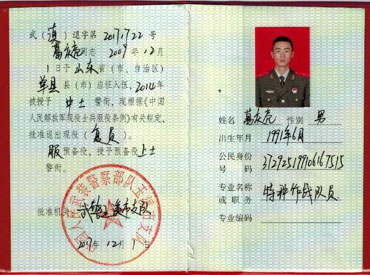 武（ ）退字第2017122号
同志 2009年12月
1日于山东省（市、自治区）
单县县（市）应征入伍，2014年
被授予中士警衔，现根据《中国
人民解放军现役士兵服役条例》有关规定，
批准退出现役（复员）
服预备役，授予预备役上士
警衔。
批准机关
2017年12月1日
姓名 性别 男
出生年月 1991年6月
公民身份
号码 372925199106167515
专业名称
或职务 特种作战队员
专业编码